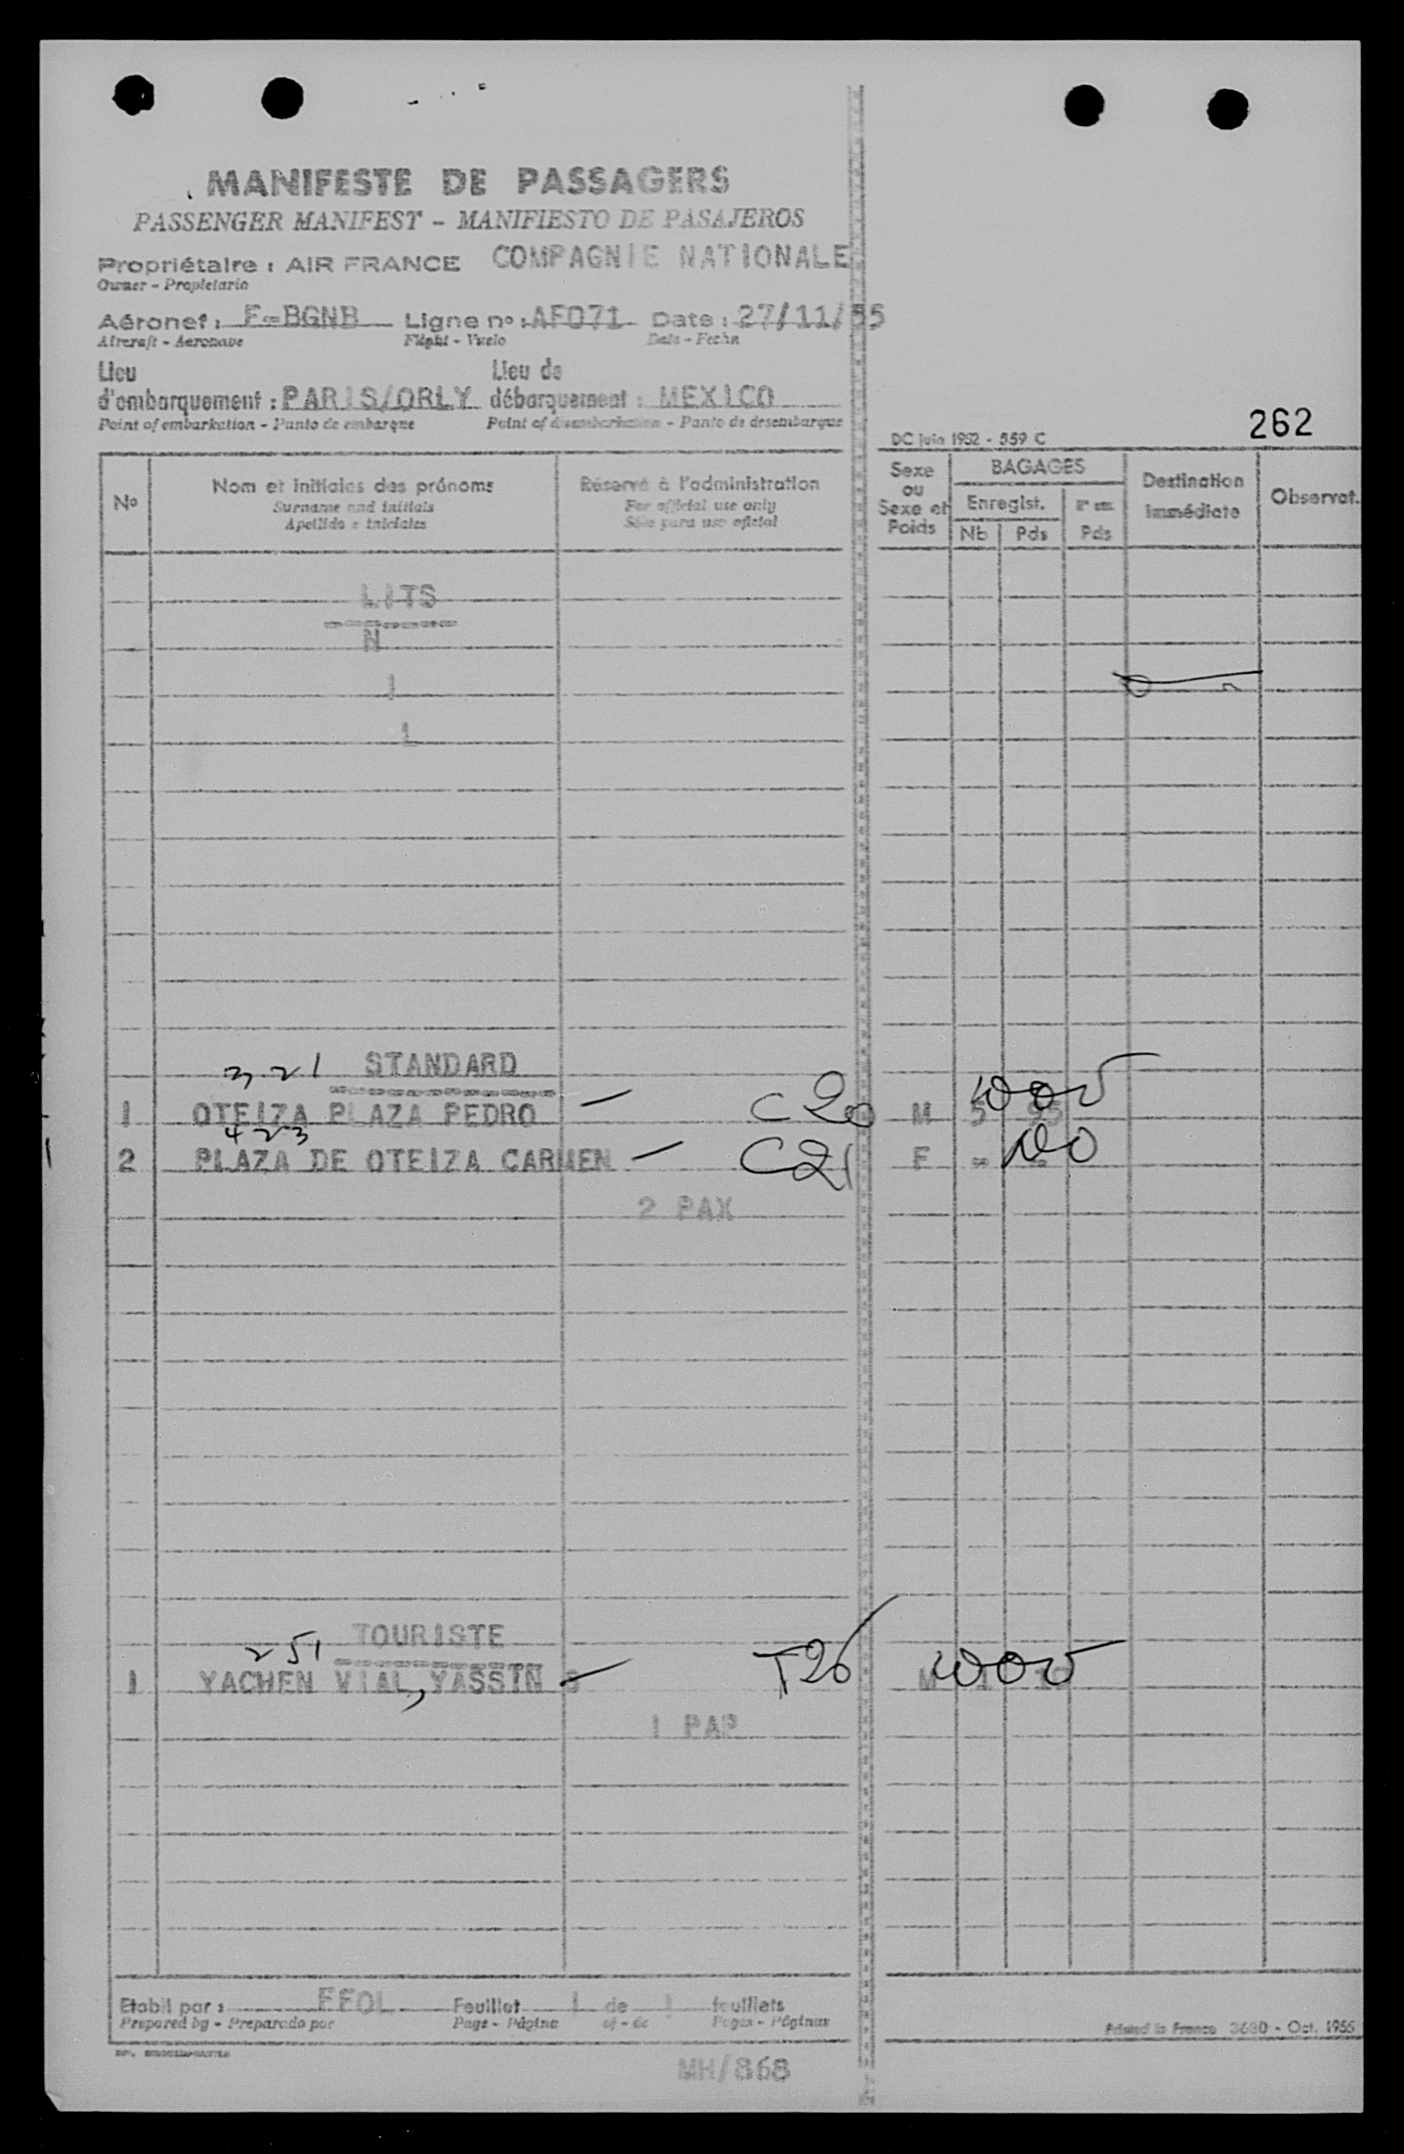 MANIFESTE DE PASSAGERS
PASSENGER MANIFEST - MANIFIESTO DE PASAJEROS
Propriétaire : AIR FRANCE COMPAGNIE NATIONALE
Owner - Propietario
Aéronef : F-BGNB Ligne nº : AF071 Date : 27/11/55
Aircraft - Aeronave Flight - Vuelo Date - Fecha
Lieu Lieu de
d'embarquement : PARIS/ORLY débarquement : MEXICO
Point of embarkation - Punto de embarque Point of disembarkation - Punto de desembarque
DC juin 1952 - 559 C 262
Nº Nom et initiales des prénoms Réservé à l'administration Sexe ou Sexe et Poids BAGAGES Destination immédiate Observat.
Surname and initials For official use only Enregist.
Apellido e iniciales Sólo para uso oficial Nb Pds Pds
LITS
N
1
1
321 STANDARD
1 OTEIZA PLAZA PEDRO C20 M 5 95
423
2 PLAZA DE OTEIZA CARMEN C21 F -
2 PAX
251 TOURISTE
1 YACHEN VIAL, YASSIN T26 M
1 PAP
Etabli par : Feuillet 1 de 1 feuillets
Prepared by - Preparado por Page - Página of - de Pages - Páginas
Printed in France 3680 - Oct. 1955
MH/868